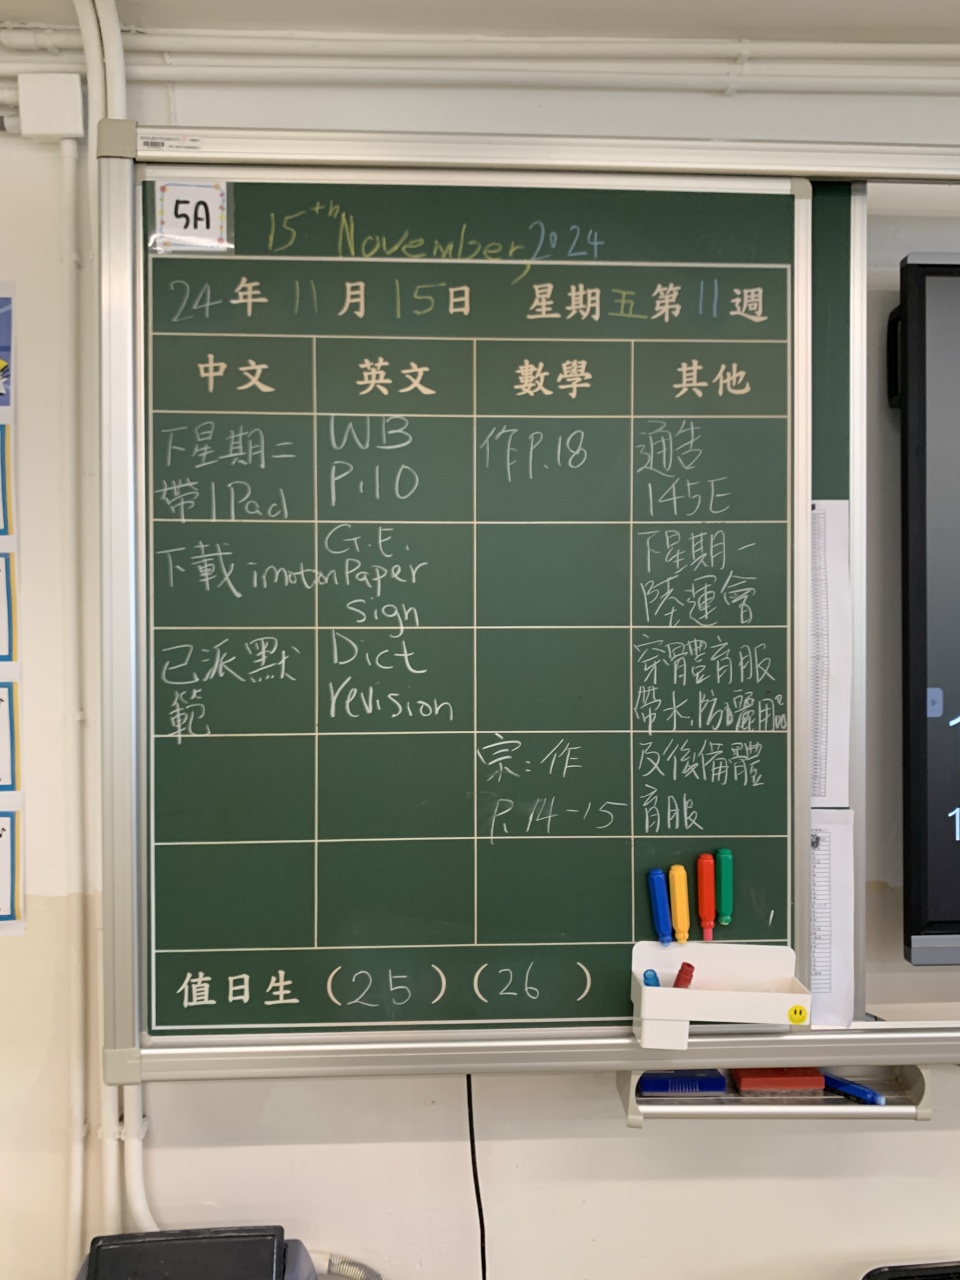 5A
15th November, 2024
24年 11月 15日 星期五第11週
中文 英文 數學 其他
下星期二
帶IPad
WB
P.10
作P.18
通告
145E
下載imotion
G.E.
Paper
sign
下星期一
陸運會
已派默
範
Dict
revision
穿體育服
帶水,防曬用品
宗:作
P.14-15
及後備體
育服
值日生 (25) (26 )